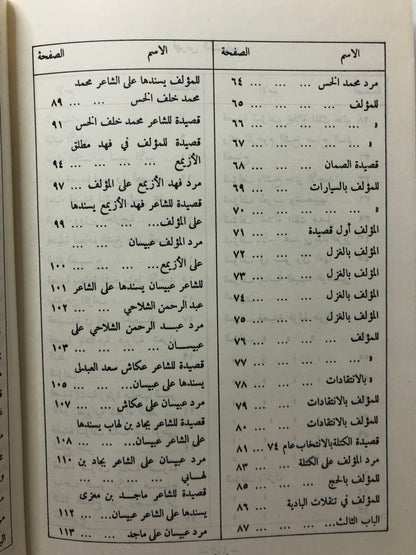 الاسم الصفحة
مرد محمد الخس ... ... ... ٦٤
للمؤلف ... ... ... ٦٥
« ... ... ... ٦٦
« ... ... ... ٦٧
قصيدة الصمان ... ... ٦٨
للمؤلف بالسيارات ... ... ٦٩
... ... ... ٧٠
المؤلف أول قصيدة ... ... ٧١
المؤلف بالغزل ... ... ٧٢
المؤلف بالغزل ... ... ٧٣
المؤلف بالغزل ... ... ٧٤
المؤلف بالغزل ... ... ٧٥
للمؤلف ... ... ... ٧٦
« ... ... ... ٧٧
« بالانتقادات ... ... ٧٨
للمؤلف بالانتقادات ... ٧٩
للمؤلف بالانتقادات ... ٨٠
قصيدة الكتلة بالانتخاب عام ٧٤ ٨١
مرد المؤلف على الكتلة ... ٨٣
للمؤلف بالحج ... ... ٨٥
للمؤلف في تنقلات البادية ٨٦
الباب الثالث... ... ... ٨٧
الاسم الصفحة
للمؤلف يسندها على الشاعر محمد
محمد خلف الخس ... ... ٨٩
قصيدة للشاعر محمد خلف الخس ٩١
قصيدة للمؤلف في فهد مطلق
الأزيمع ... ... ... ٩٤
مرد فهد الأزيمع على المؤلف ... ٩٧
قصيدة للشاعر فهد الأزيمع يسندها
على المؤلف... ... ... ٩٩
مرد المؤلف عبيسان
على الأزيمع... ... ... ١٠٠
للشاعر عبيسان يسندها على الشاعر ١٠١
عبد الرحمن الشلاحي ... ١٠٢
مرد عبد الرحمن الشلاحي على
عبيسان ... ... ... ١٠٣
قصيدة للشاعر عكاش سعد العبدلي
يسندها على عبيسان... ... ١٠٥
مرد عبيسان على عكاش ... ١٠٧
قصيدة للشاعر بجاد بن لهاب يسندها
على الشاعر عبيسان... ... ١٠٨
مرد عبيسان على الشاعر بجاد بن ١١٠
لهابي ... ... ... ...
قصيدة للشاعر ماجد بن معزى
يسندها على الشاعر عبيسان... ١١٢
مرد عبيسان على ماجد ... ١١٣